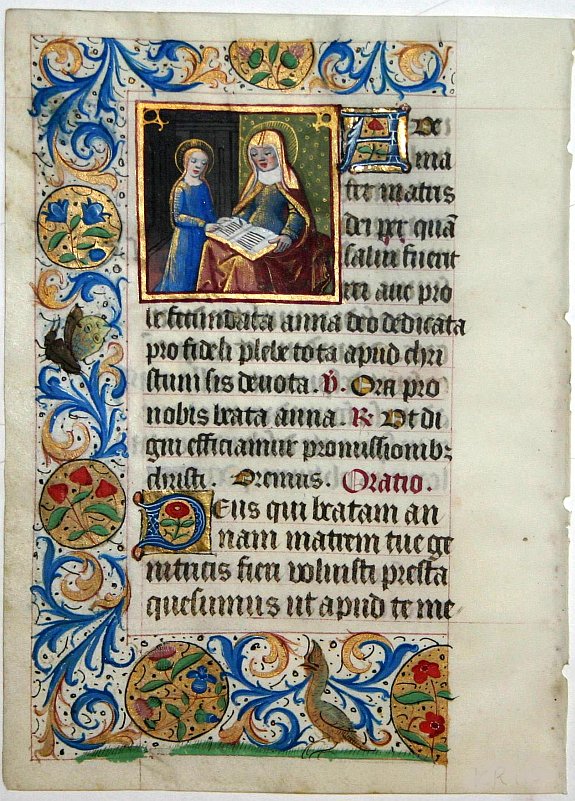 A De
ma
ter matris
dei per quā
salui fierit
rei aue pro
le fecundata anna deo dedicata
pro fideli plebe tota apud chri
stum sis deuota. V. Ora pro
nobis beata anna. R. Ut di
gni efficiamur promissionibz
christi. Oremus. Oratio.
Deus qui beatam an
nam matrem tue ge
nitricis fieri voluisti presta
quesumus ut apud te me